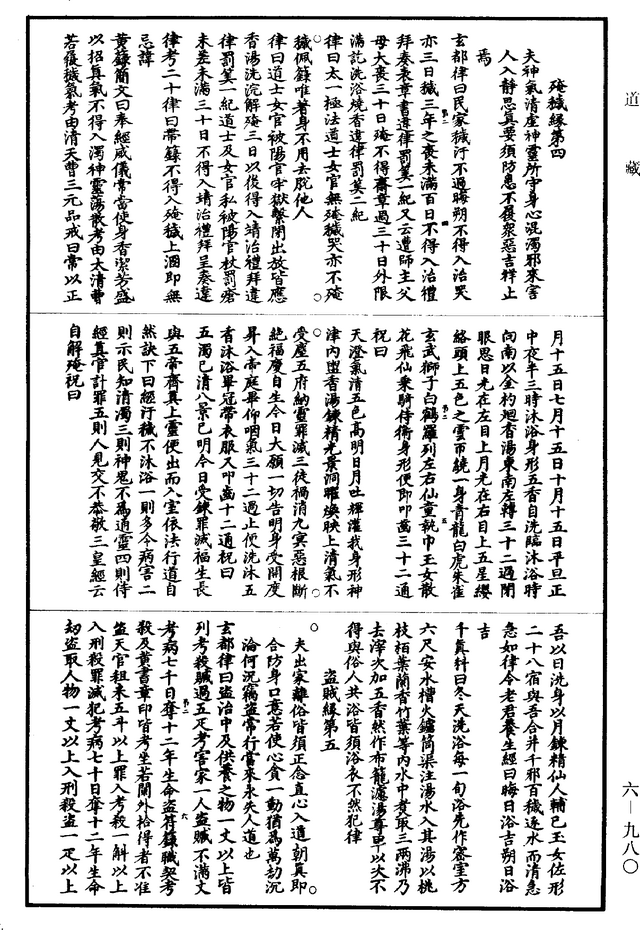 道藏
淹穢緣第四
夫神氣清虛神靈所守身心混濁邪來害
人入靜思真要須防患不履眾惡吉祥止
焉
玄都律曰民家穢汙不過晦朔不得入治哭
亦三日穢三年之喪未滿百日不得入治禮
拜奏表章書違律罰筭一紀又云遭師主父
母大喪三十日淹不得齋章過三十日外限
滿訖洗浴燒香違律罰筭二紀
律曰太一極法道士女官無淹穢哭亦不淹
穢佩籙唯著身不用去脫他人
律曰道士女官被陽官牢獄繫閉出放皆應
香湯洗浣解淹三日以後得入靖治禮拜違
律罰筭一紀道士及女官私被陽官杖罰瘡
未差未滿三十日不得入靖治禮拜呈奏違
律考二十律曰帶籙不得入淹穢上溷即無
忌諱
黃籙簡文曰奉經威儀常當使身香潔芳盛
以招真氣不得入濁神靈蕩散考由太清曹
若履穢氣考由清天曹三元品戒曰常以正
月十五日七月十五日十月十五日平旦正
中夜半三時沐浴身形五香自洗臨沐浴時
向南以金杓迴香湯東南左轉三十二過閉
眼思日光在左目上月光在右目上五星纓
絡頭上五色之雲帀繞一身青龍白虎朱雀
玄武獅子白鶴羅列左右仙童執巾玉女散
花飛仙乘騎侍衛身形便即叩齒三十二通
祝曰
天澄氣清五色高明日月吐輝灌我身形神
津內盥香湯鍊精光景洞曜煥映上清氣不
受塵五府納靈罪滅三徒禍消九冥惡根斷
絕福慶自生今日大願一切告明身受開度
昇入帝庭畢仰咽氣三十二過止便洗沐五
香沐浴畢冠帶衣服又叩齒十二通祝曰
五濁已清八景已明今日受鍊罪滅福生長
與五帝齊真上靈便出而入室依法行道自
然訣下曰經汙穢不沐浴一則多令病害二
則示民知清濁三則神鬼不為通靈四則侍
經真官計罪五則人見交不恭敬三皇經云
自解淹祝曰
吾以日洗身以月鍊精仙人輔己玉女佐形
二十八宿與吾合并千邪百穢逐水而清急
急如律令老君養生經曰晦日浴吉朔日浴
吉
千真科曰冬天洗浴每一旬浴先作密室方
六尺安水槽火鑪筒渠注湯水入其湯以桃
枝栢葉蘭香竹葉等內水中煮取三兩沸乃
去滓次加五香然作布籠濾湯尊卑以次不
得與俗人共浴皆須浴衣不然犯律
盜賊緣第五
夫出家離俗皆須正念直心入道朝真即
合防身口意若使心貪一動猶為萬劫沉
淪何況竊盜常行當來永失人道也
玄都律曰盜治中及供養之物一丈以上皆
列考殺贓過五疋考害家一人盜贓不滿丈
考病七千日奪十二年生命盜符籙職契考
殺及黃書章印皆考坐若闌外拾得者不准
盜天官租米五斗以上罪入考殺一斛以上
入刑殺罪滅犯考病七十日奪十二年生命
劫盜取人物一丈以上入刑殺盜一疋以上
六—九八〇